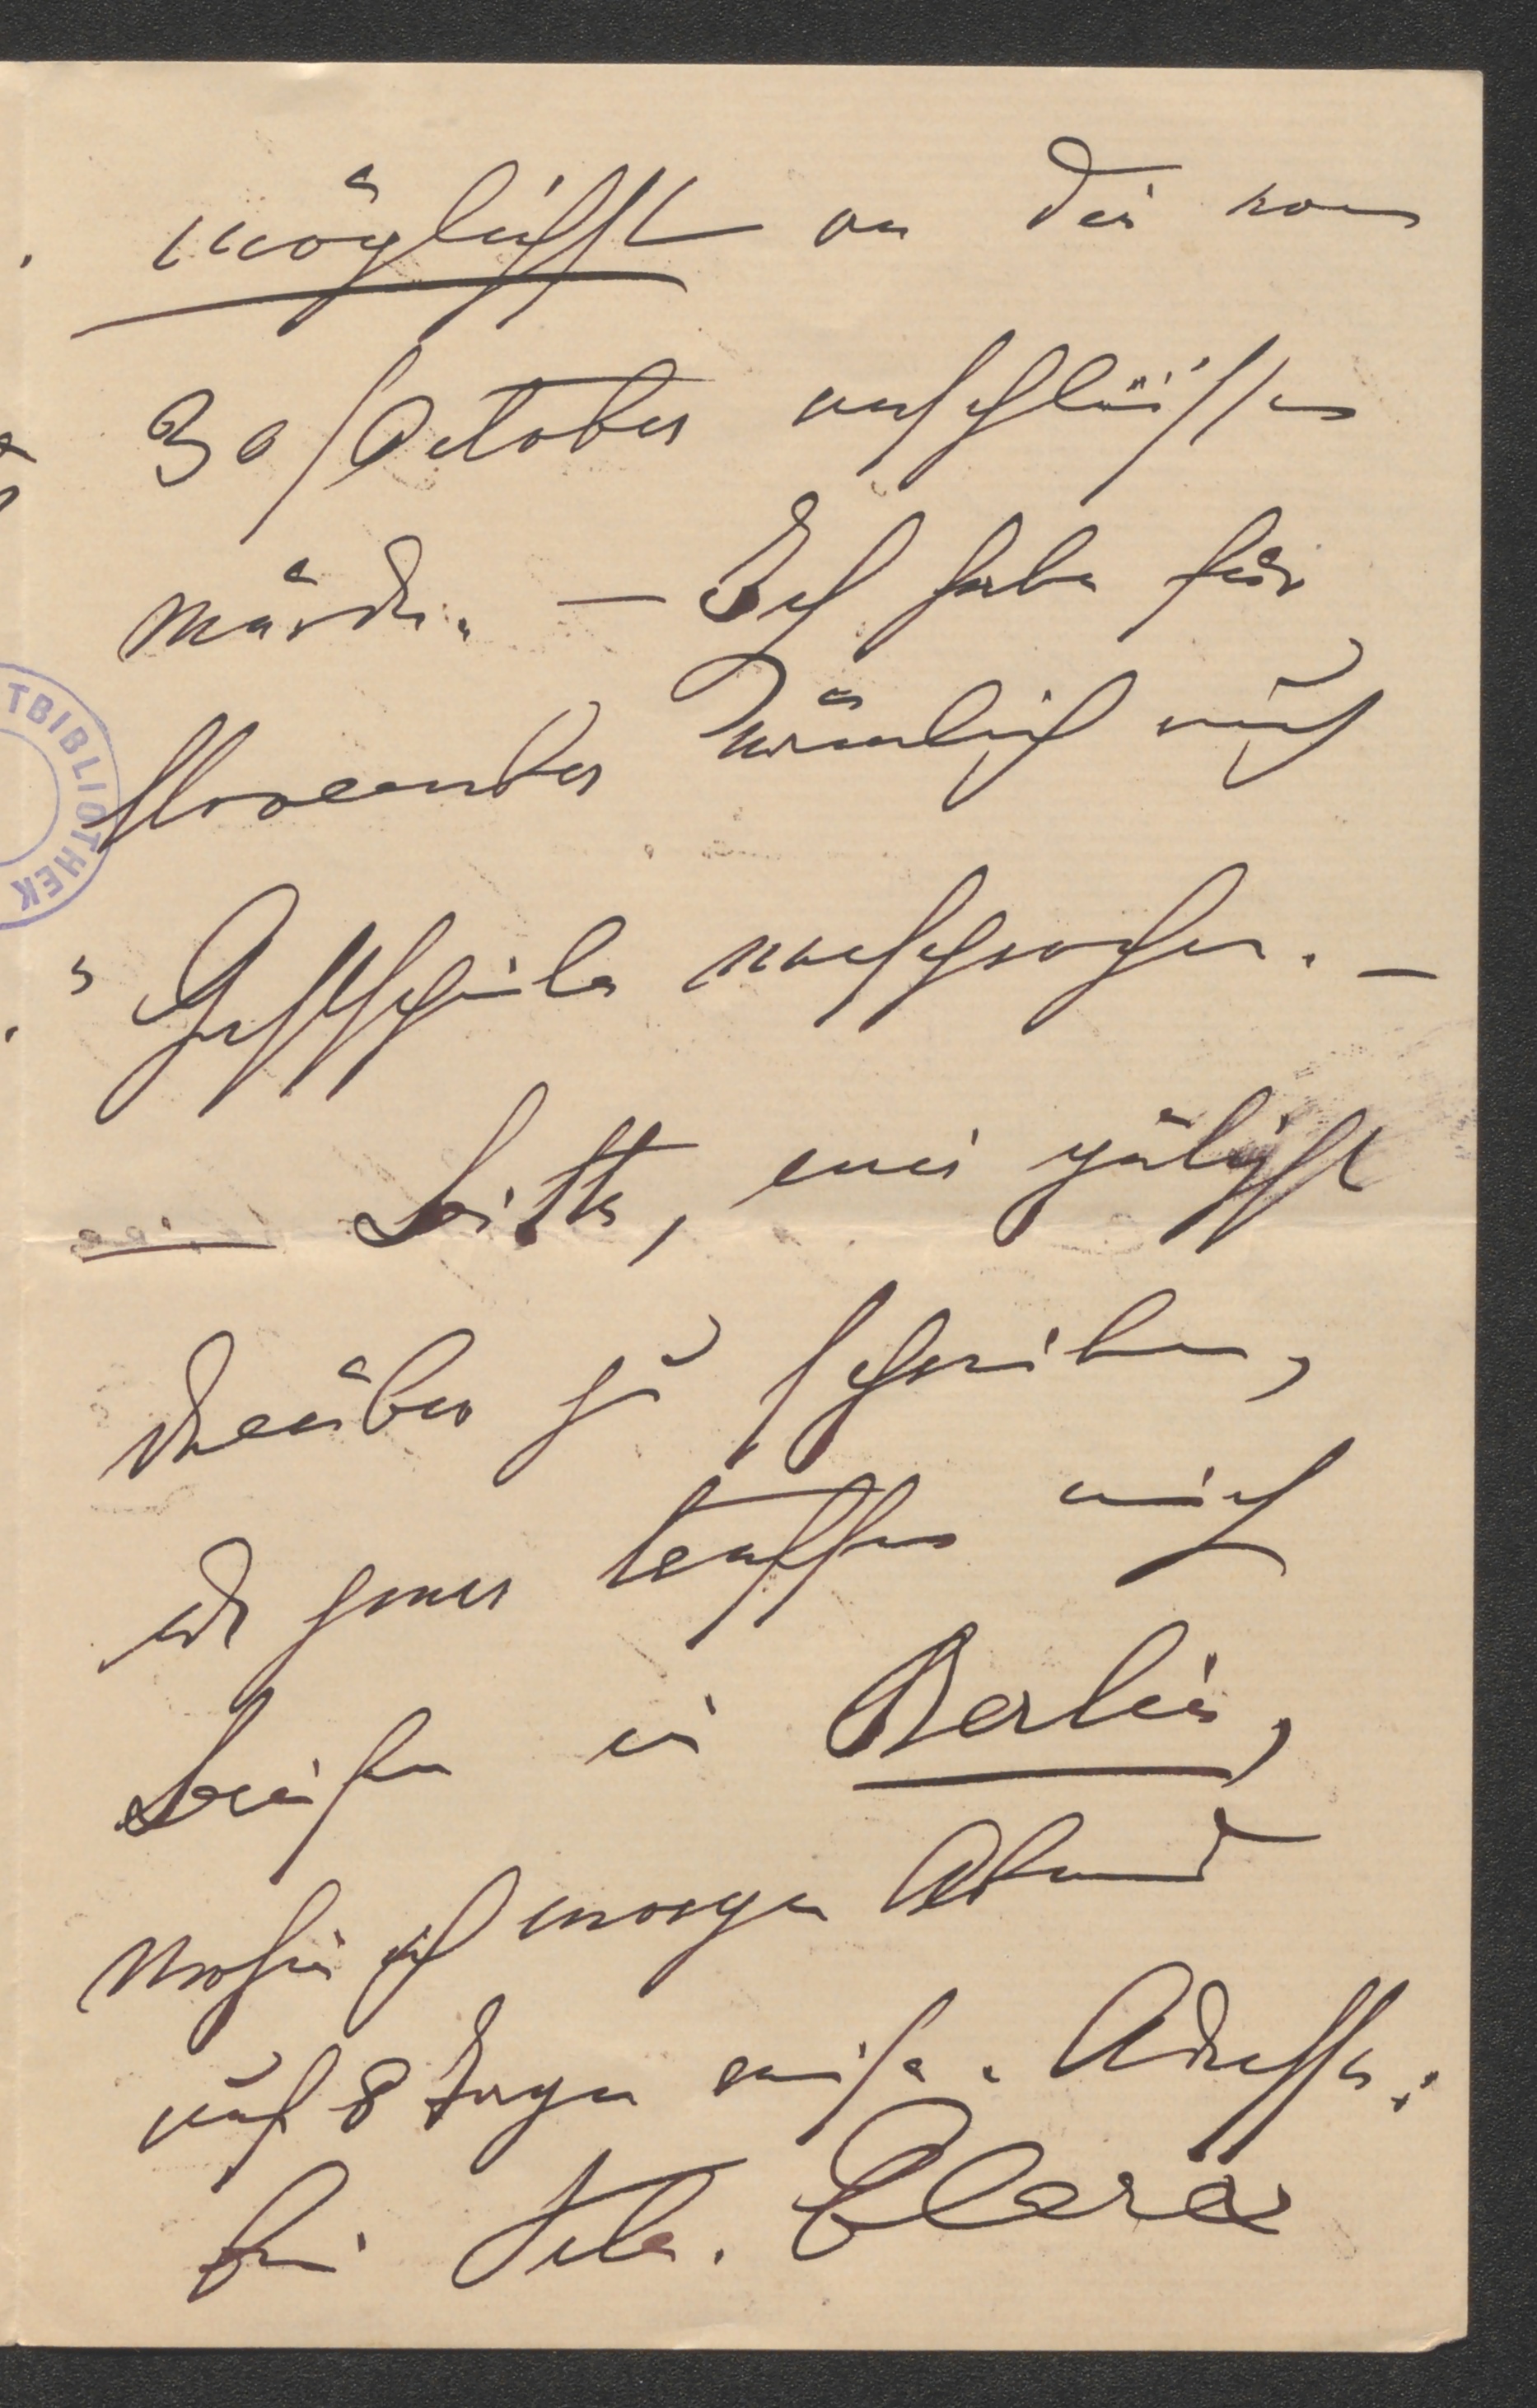 möglichst an die vom
30/October anschließen
würde. – Ich habe für
November nämlich auch
Gastspiele versprochen. –
Bitte, mir gütigst
darüber zu schreiben,
treffen mich
Briefe in Berlin,
wohin ich morgen Abend
auf 8 Tage reise. Adresse:
bei Frln. Clara
TBIBLIOTHEK